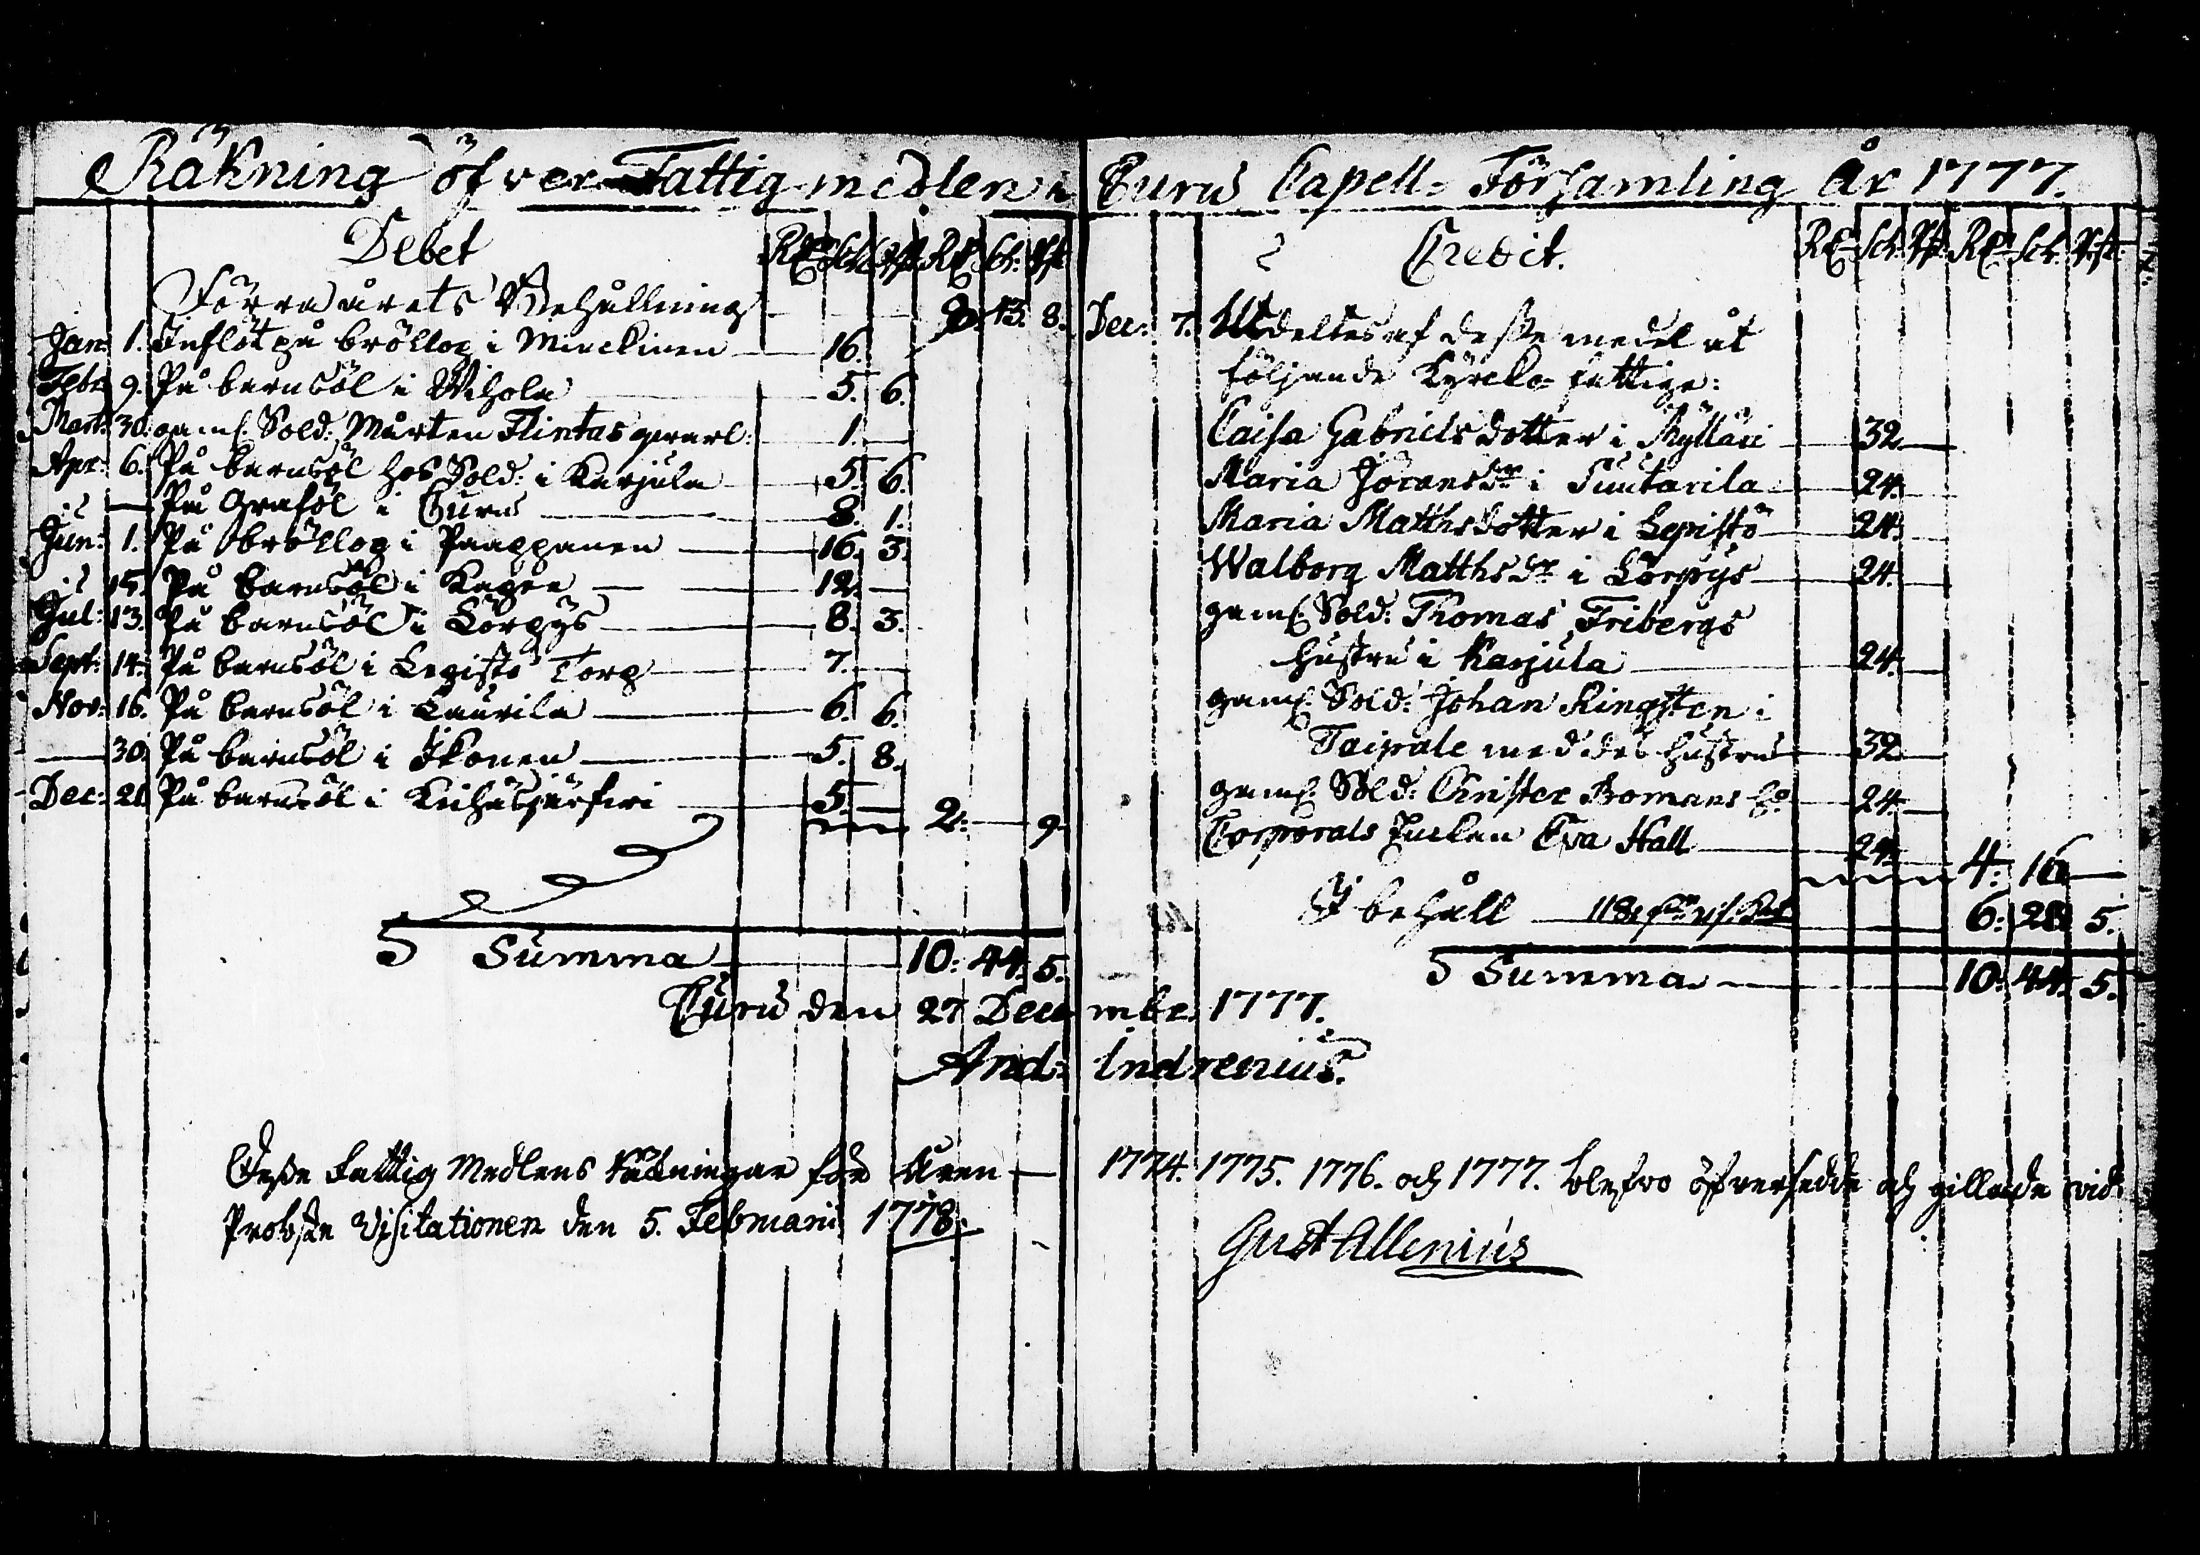 Räkning öfver Fattig medlen i Curu Capell-Församling År 1777.
Debet RD Sch: Rst RD Sch: Rst
Förra årets Behållning 8. 43. 8.
Jan: 1. Inflöt på bröllop i Minckinen 16.
Febr: 9. På barnsöl i Wihola 5. 6.
Mart: 30. gaml. Sold: Mårten Flintas qvarl: 1.
Apr: 6. På barnsöl hos Sold: i Karjula 5. 6.
På Graföl i Curu 8. 1.
Jun: 1. På bröllop i Paappanen 16. 3.
15. På barnsöl i Kapee 12.
Jul: 13. På barnsöl i Törpys 8. 3.
Sept: 14. På barnsöl i Lepistö Torp 7.
Nov: 16. På barnsöl i Laurila 6. 6.
30. På barnsöl i Ikonen 5. 8.
Dec: 21. På barnsöl i 5. 2. 9.
Summa 10. 44. 5.
Credit. RD Sch: Rst RD Sch: Rst:
Dec: 7. Utdeltes af desse medel åt
följande Kyrcko-fattige:
Caisa Gabriels dotter i Mylläri 32.
Maria Jöransdr i Suutarila 24.
Maria Matthsdotter i Lepistö 24.
Walborg Matthsdr i Törpys 24.
gaml. Sold: Thomas Fribergs
hustru i Karjula 24.
gaml. Sold: Johan Ringsten i
Taipale med des hustru 32.
gaml. Sold: Christer Bomans h: 24.
Corporals Enkan Eva Hall 24. 4. 16.
I behåll 6. 28. 5.
Summa 10. 44. 5.
Curu den 27 Decembr. 1777.
And: Indrenius.
Desse Fattig Medlens Räkningar för Åren 1774. 1775. 1776. och 1777. blefvo öfversedde och gillade vid
Probste Visitationen den 5. Februarii 1778.
Gust Allenius